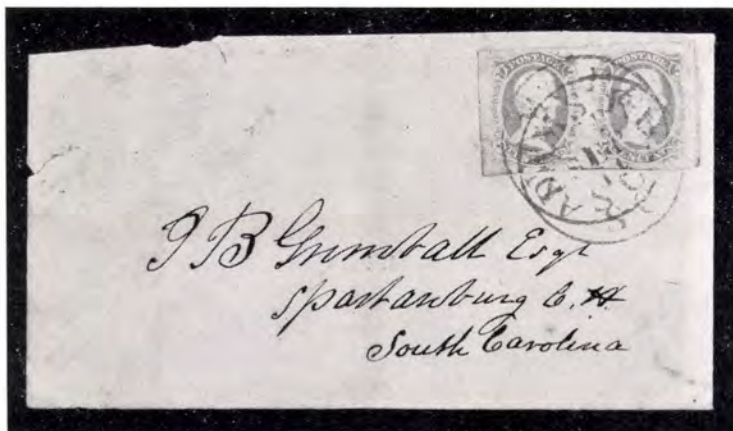 POSTAGE POSTAGE
J B Grimball Esqr
Spartanburg C. H.
South Carolina